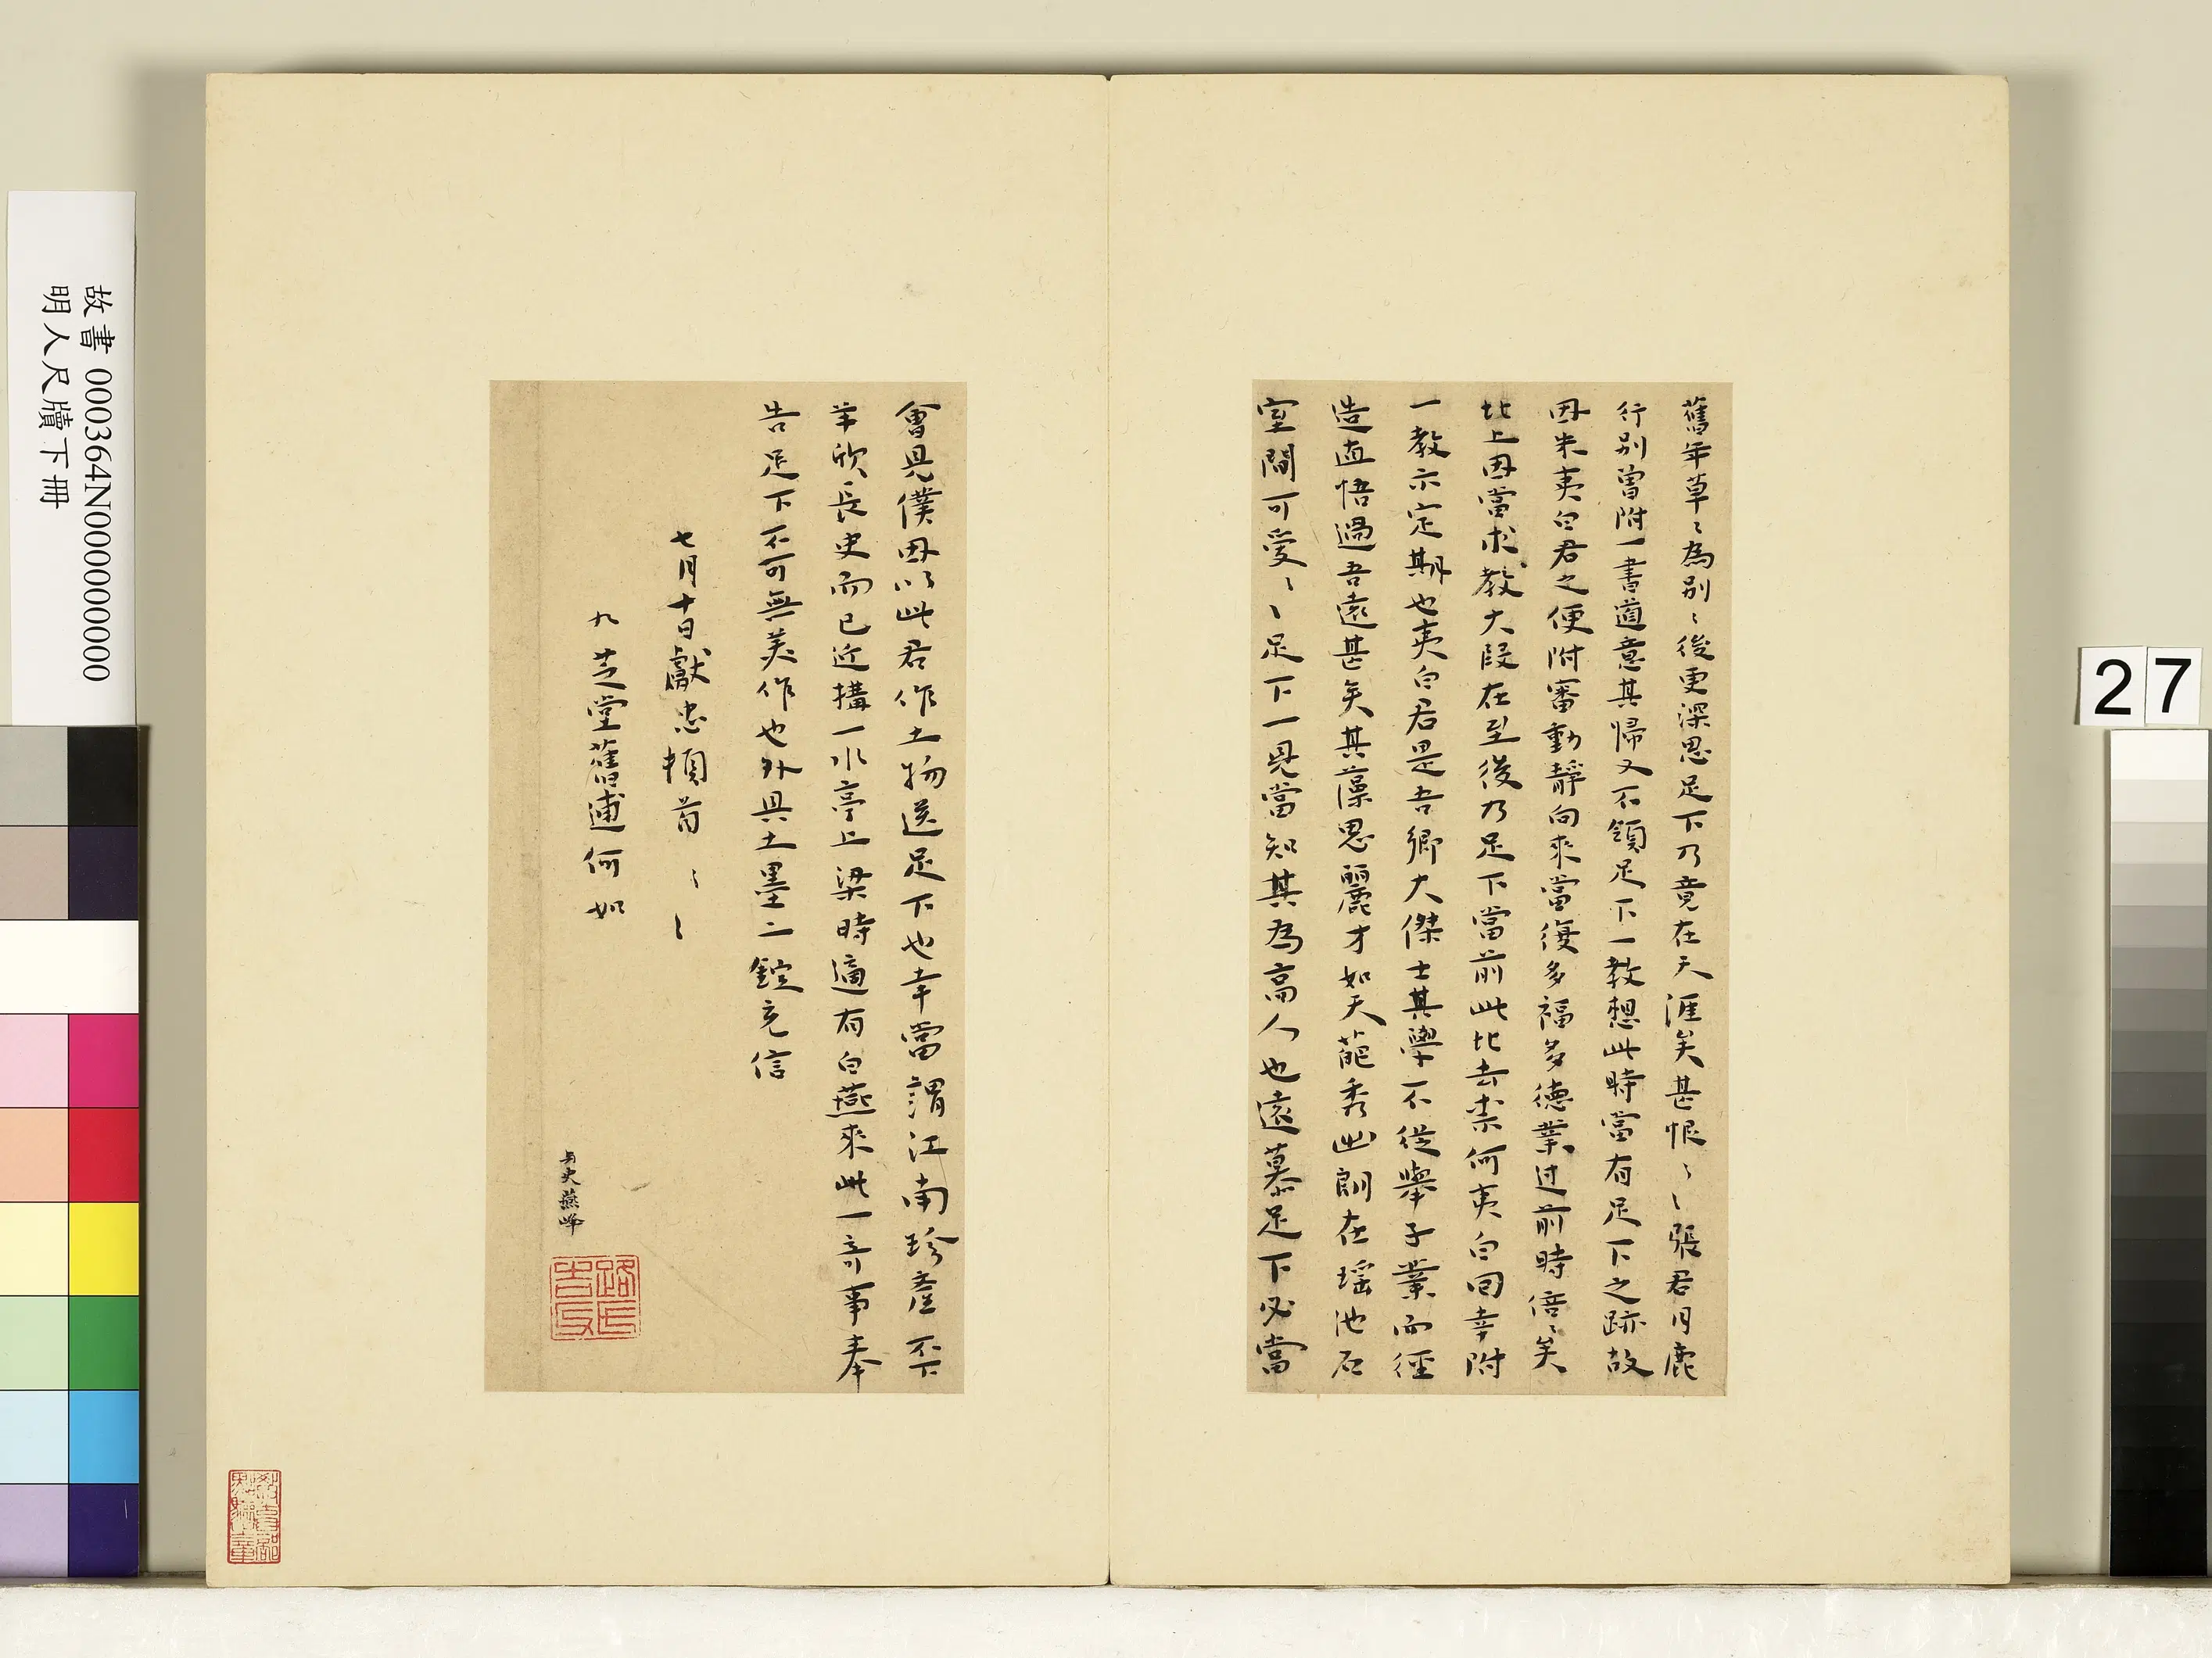 舊年草〻為別〻後更深思足下乃竟在天涯矣甚恨〻〻張君月鹿
行別曾附一書道意其歸又不領足下一教想此時當有足下之跡故
因朱夷白君之便附審動靜向來當復多福多德業过前時倍〻矣
比上因當求教大段在至後乃足下當前此比去柰何夷白回幸附
一教示定期也夷白君是吾鄉大傑士其學不從舉子業而徑
造直悟過吾遠甚矣其藻思麗才如天葩秀出朗在瑤池石
室間可愛〻〻足下一見當知其為高人也遠慕足下必當
會見僕因以此君作土物送足下也幸當謂江南珍產不下
羊欣長史而已近搆一水亭上梁時適有白燕來此一奇事奉
告足下不可無美作也外具土墨二錠充信
七月十日獻忠頓首〻〻
九芝堂舊逋何如
故書 000364N000000000
明人尺牘下冊
27